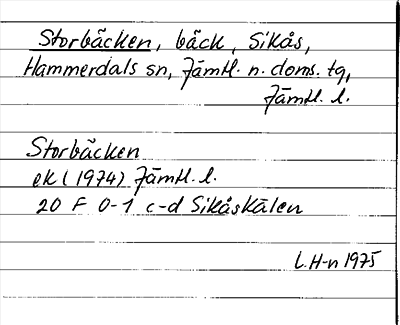 Storbäcken, bäck, Sikås,
Hammerdals sn, Jämtl. n. doms. tg,
Jämtl. l.
Storbäcken
ek (1974) Jämtl. l.
20 F 0-1 c-d Sikåskälen
L.H-n 1975